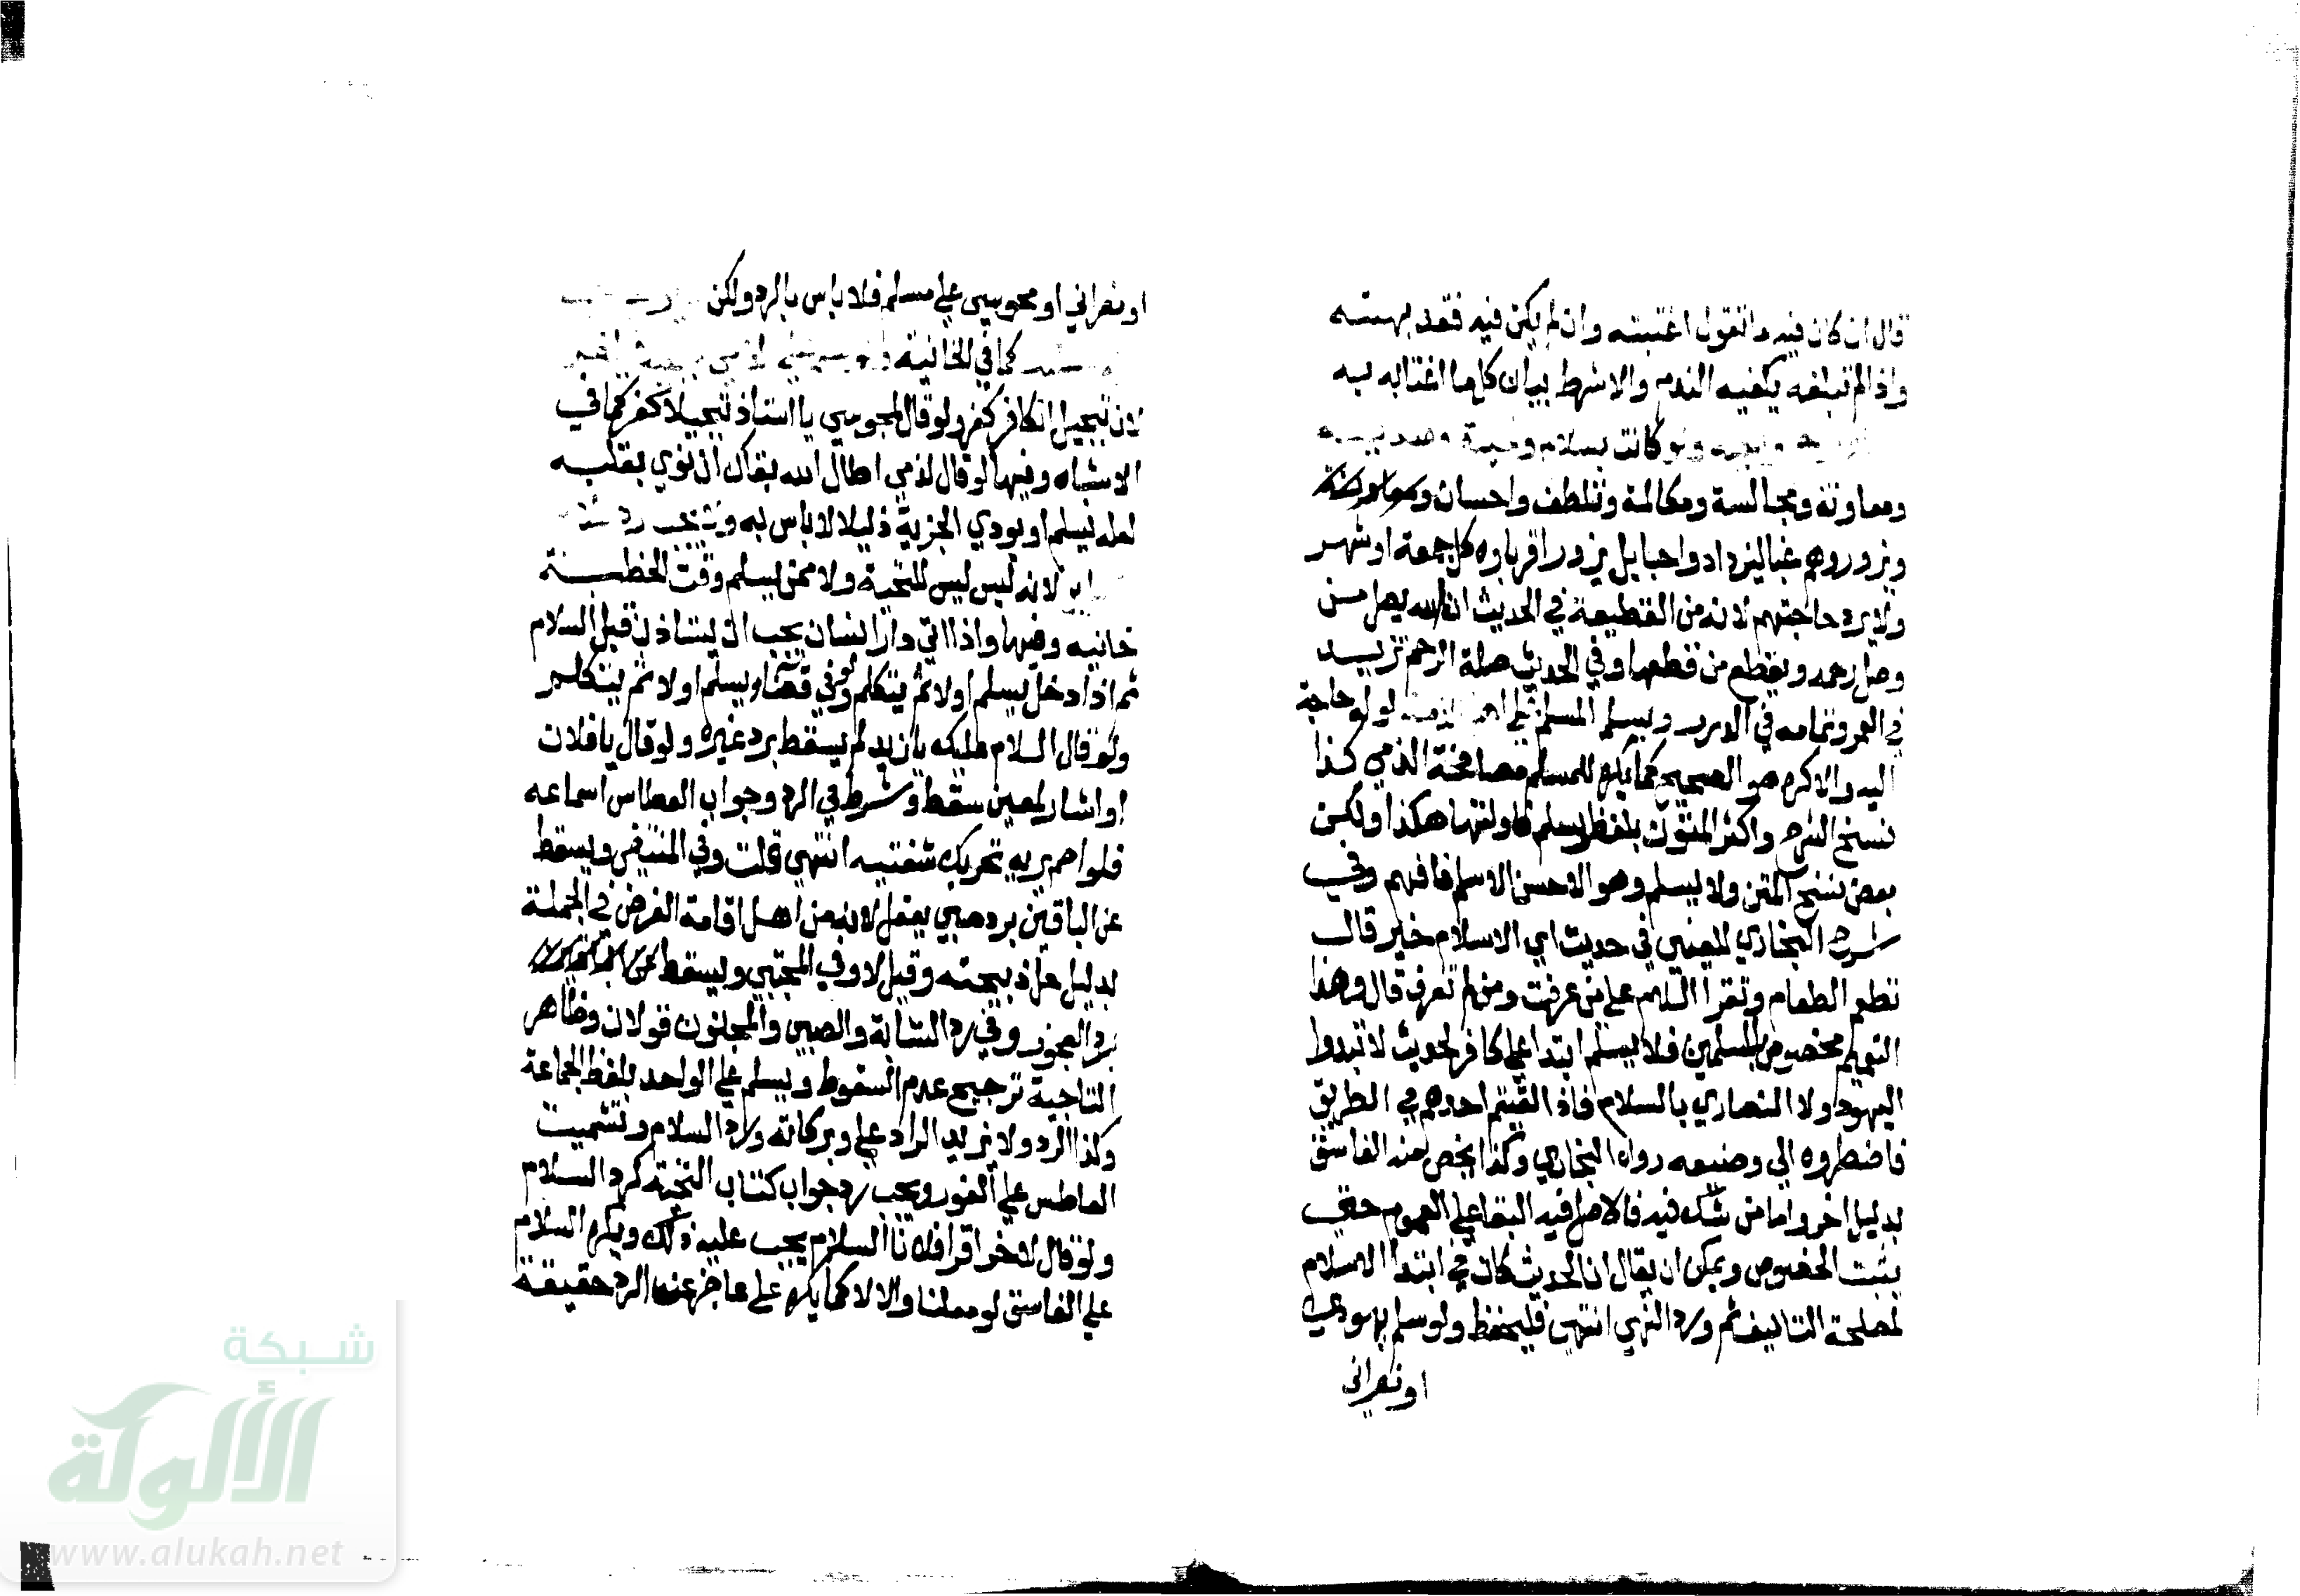 قال ان كان فيه ما تقول اغتبته وان لم يكن فيه فقد بهته
واذا لم تبلغه يكفيه الندم والا شرط بيان كل ما اغتابه به
ولو كانت بسلام وتحية وهدية
ومعاونة ومجالسة ومكالمة وتلطف واحسان
ويزورهم غبا ليزداد واحبا بل يزور اقرباوه كل جمعة او شهر
ولا يرد حاجتهم لانه من القطيعة في الحديث ان الله يصل من
وصل رحمه ويقطع من قطعها وفي الحديث صلة الرحم تزيد
في العمر وتمامه في الدرر ويسلم المسلم على اهل الذمة لو له حاجة
اليه والا كره هو الصحيح كما يكره للمسلم مصافحة الذمي كذا
نسخ الشرح واكثر المتون بلفظ يسلم فاولتها هكذا ولكن
بعض نسخ المتن ولا يسلم وهو الاحسن الاسلم فافهم وفي
شرح البخاري للعيني في حديث اي الاسلام خير قال
تطعم الطعام وتقرا السلام على من عرفت ومن لم تعرف قال وهذا
التعميم مخصوص بالمسلمين فلا يسلم ابتدا على كافر لحديث لا تبدوا
اليهود ولا النصاري بالسلام فاذا لقيتم احدهم في الطريق
فاضطروه الي وضيعه رواه البخاري وكذا يخص منه الفاسق
بدليل اخر واما من شك فيه فالاصل فيه البقا على العموم حتي
يثبت الخصوص ويمكن ان يقال ان الحديث كان في ابتدا الاسلام
لمصلحة التاليف ثم ورد النهي انتهى فليحفظ ولو سلم يهودي
او نصراني
او نصراني او مجوسي على مسلم فلا باس بالرد ولكن
كما في الخانية
لان تبجيل الكافر كفر ولو قال لمجوسي يا استاذ تبجيلا كفر كما في
الاشباه وفيها لو قال لذمي اطال الله بقاك ان نوي بقلبه
لعله يسلم او يودي الجزية ذليلا لا باس به ويجب رد
لانه ليس للتحية ولا ممن يسلم وقت الخطبة
خانيه وفيها واذا اتي دار انسان يجب ان يستاذن قبل السلام
ثم اذا دخل يسلم اولا ثم يتكلم ولو في فضا يسلم اولا ثم يتكلم
ولو قال السلام عليك يا زيد لم يسقط برد غيره ولو قال يا فلان
او اشار لمعين سقط وشرط في الرد وجواب العطاس اسماعه
فلو اصم يريه تحريك شفتيه انتهى قلت وفي المبتغي ويسقط
عن الباقين برد صبي يعقل لانه من اهل اقامة الفرض في الجملة
بدليل حل ذبيحته وقيل لا وفي المجتبي ويسقط
برد العجوز وفي رد الشابة والصبي والمجنون قولان وظاهر
التاجية ترجيح عدم السقوط ويسلم على الواحد بلفظ الجماعة
وكذا الرد ولا يزيد الراد على وبركاته ورد السلام وتشميت
العاطس على الفور ويجب رد جواب كتاب التحية كرد السلام
ولو قال لاخر اقرا فلانا السلام يجب عليه ذلك ويكره السلام
على الفاسق لو معلنا والا لا كما يكره على عاجز عن الرد حقيقة
شبكة
الألوكة
www.alukah.net